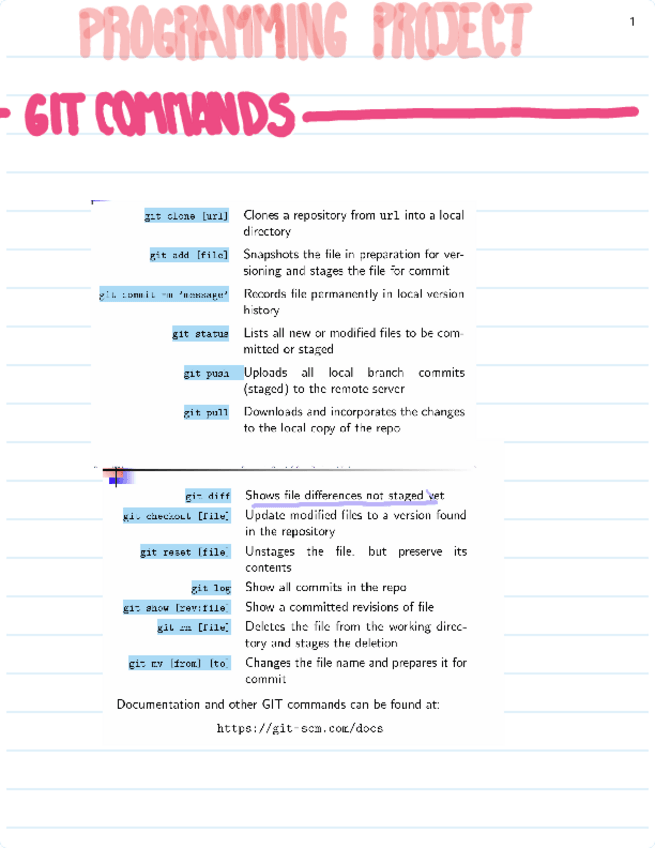 PROGRAMMING PROJECT
1
GIT COMMANDS
git clone [url] Clones a repository from url into a local
directory
git add [file] Snapshots the file in preparation for ver-
sioning and stages the file for commit
git commit -m 'message' Records file permanently in local version
history
git status Lists all new or modified files to be com-
mitted or staged
git push Uploads all local branch commits
(staged) to the remote server
git pull Downloads and incorporates the changes
to the local copy of the repo
git diff Shows file differences not staged yet
git checkout [file] Update modified files to a version found
in the repository
git reset [file] Unstages the file, but preserve its
contents
git log Show all commits in the repo
git show [rev:file] Show a committed revisions of file
git rm [file] Deletes the file from the working direc-
tory and stages the deletion
git mv [from] [to] Changes the file name and prepares it for
commit
Documentation and other GIT commands can be found at:
https://git-scm.com/docs